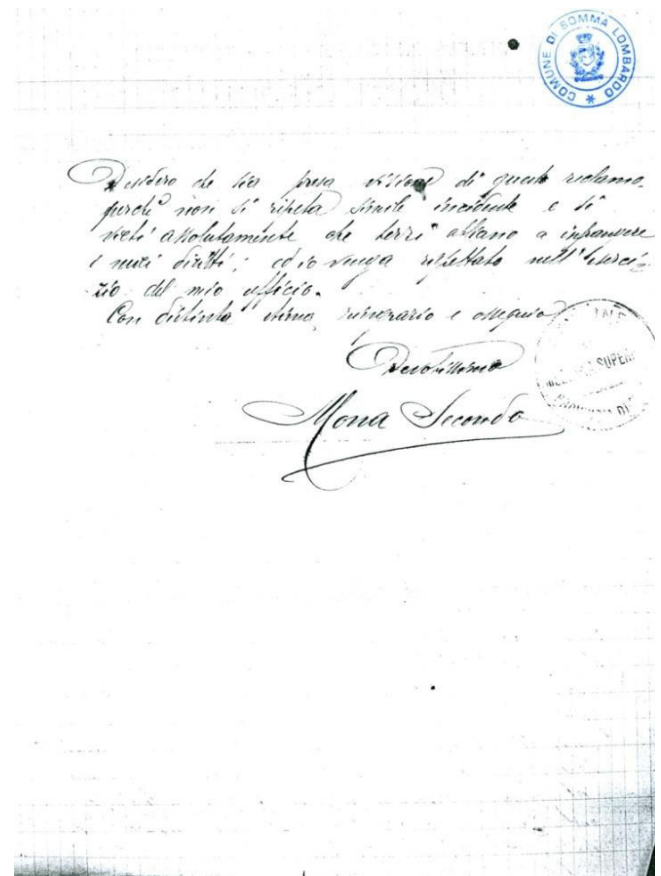 COMUNE DI SOMMA LOMBARDO
Desidero che sia presa visione di questo reclamo
perchè non si ripeta simile incidente e si
vieti assolutamente che terzi abbiano a infrangere
i miei diritti; ed io venga rispettato nell'eserci=
zio del mio ufficio.
Con distinta stima, e ossequio
Devotissimo
Mona Secondo